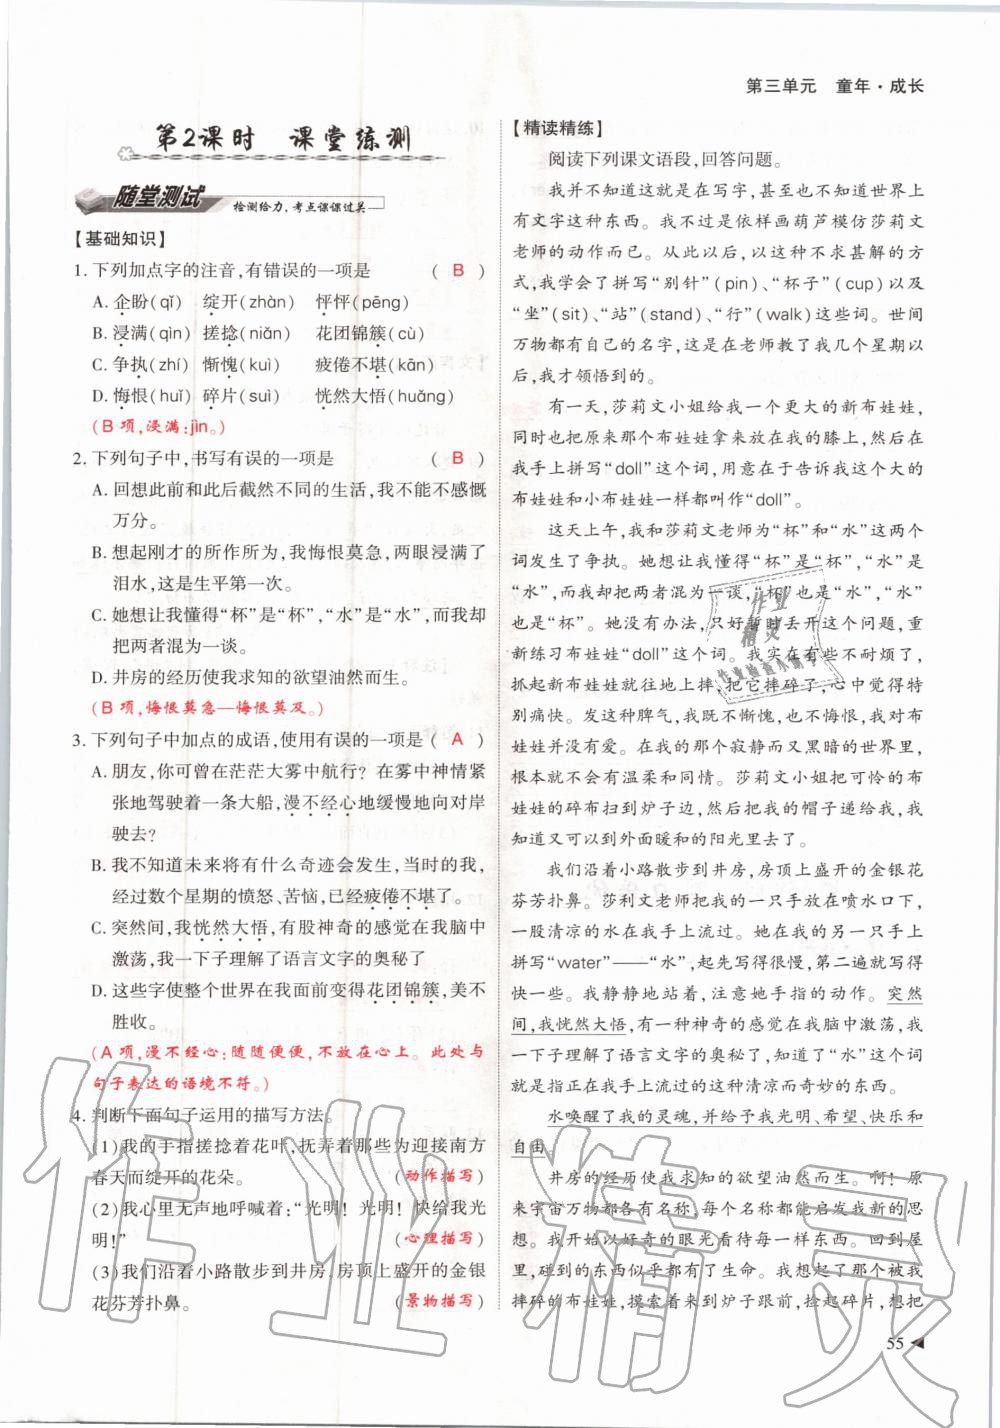 第三单元 童年·成长
第2课时 课堂练测
随堂测试 检测给力,考点课课过关
【基础知识】
1. 下列加点字的注音,有错误的一项是 ( B )
A. 企盼(qǐ) 绽开(zhàn) 怦怦(pēng)
B. 浸满(qìn) 搓捻(niǎn) 花团锦簇(cù)
C. 争执(zhí) 惭愧(kuì) 疲倦不堪(kān)
D. 悔恨(huǐ) 碎片(suì) 恍然大悟(huǎng)
(B项,浸满:jìn。)
2. 下列句子中,书写有误的一项是 ( B )
A. 回想此前和此后截然不同的生活,我不能不感慨
万分。
B. 想起刚才的所作所为,我悔恨莫急,两眼浸满了
泪水,这是生平第一次。
C. 她想让我懂得“杯”是“杯”,“水”是“水”,而我却
把两者混为一谈。
D. 井房的经历使我求知的欲望油然而生。
(B项,悔恨莫急—悔恨莫及。)
3. 下列句子中加点的成语,使用有误的一项是 ( A )
A. 朋友,你可曾在茫茫大雾中航行?在雾中神情紧
张地驾驶着一条大船,漫不经心地缓慢地向对岸
驶去?
B. 我不知道未来将有什么奇迹会发生,当时的我,
经过数个星期的愤怒、苦恼,已经疲倦不堪了。
C. 突然间,我恍然大悟,有股神奇的感觉在我脑中
激荡,我一下子理解了语言文字的奥秘了
D. 这些字使整个世界在我面前变得花团锦簇,美不
胜收。
(A项,漫不经心:随随便便,不放在心上。此处与
句子表达的语境不符。)
4. 判断下面句子运用的描写方法。
(1)我的手指搓捻着花叶,抚弄着那些为迎接南方
春天而绽开的花朵。 (动作描写)
(2)我心里无声地呼喊着:“光明!光明!快给我光
明!” (心理描写)
(3)我们沿着小路散步到井房,房顶上盛开的金银
花芬芳扑鼻。 (景物描写)
【精读精练】
阅读下列课文语段,回答问题。
我并不知道这是在写字,甚至也不知道世界上
有文字这种东西。我不过是依样画葫芦模仿莎莉文
老师的动作而已。从此以后,以这种不求甚解的方
式,我学会了拼写“别针”(pin)、“杯子”(cup)以及
“坐”(sit)、“站”(stand)、“行”(walk)这些词。世间
万物都有自己的名字,这是在老师教了我几个星期以
后,我才领悟到的。
有一天,莎莉文小姐给我一个更大的新布娃娃,
同时也把原来那个布娃娃拿来放在我的膝上,然后在
我手上拼写“doll”这个词,用意在于告诉我这个大的
布娃娃和小布娃娃一样都叫作“doll”。
这天上午,我和莎莉文老师为“杯”和“水”这两个
词发生了争执。她想让我懂得“杯”是“杯”,“水”是
“水”,而我却把两者混为一谈,“杯”也是“水”,“水”
也是“杯”。她没有办法,只好暂时丢开这个问题,重
新练习布娃娃“doll”这个词。我实在有些不耐烦了,
抓起新布娃娃就往地上摔,把它摔碎了,心中觉得特
别痛快。发这种脾气,我既不惭愧,也不悔恨,我对布
娃娃并没有爱。在我的那个寂静而又黑暗的世界里,
根本就不会有温柔和同情。莎莉文小姐把可怜的布
娃娃的碎布扫到炉子边,然后把我的帽子递给我,我
知道又可以到外面暖和的阳光里去了。
我们沿着小路散步到井房,房顶上盛开的金银花
芬芳扑鼻。莎利文老师把我的一只手放在喷水口下,
一股清凉的水在我手上流过。她在我的另一只手上
拼写“water”——“水”,起先写得很慢,第二遍就写得
快一些。我静静地站着,注意她手指的动作。突然
间,我恍然大悟,有一种神奇的感觉在我脑中激荡,我
一下子理解了语言文字的奥秘了,知道了“水”这个词
就是指正在我手上流过的这种清凉而奇妙的东西。
水唤醒了我的灵魂,并给予我光明、希望、快乐和
自由。
井房的经历使我求知的欲望油然而生。啊!原
来宇宙万物都各有名称,每个名称都能启发我新的思
想。我开始以好奇的眼光看待每一样东西。回到屋
里,碰到的东西似乎都有了生命。我想起了那个被我
摔碎的布娃娃,摸索着来到炉子跟前,捡起碎片,想把
55
作业精灵